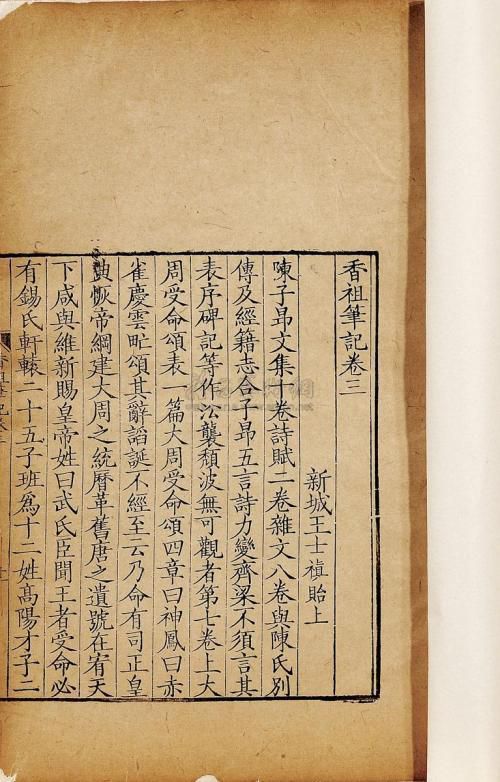 香祖筆記卷三
新城王士禛貽上
陳子昂文集十卷詩賦二卷雜文八卷與陳氏別
傳及經籍志合子昂五言詩力變齊梁不須言其
表序碑記等作沿襲頹波無可觀者第七卷上大
周受命頌表一篇大周受命頌四章曰神鳳曰赤
雀慶雲甿頌其辭諂誕不經至云乃命有司正皇
典恢帝綱建大周之統曆革舊唐之遺號在宥天
下咸與維新賜皇帝姓曰武氏臣聞王者受命必
有錫氏軒轅二十五子班爲十二姓髙陽才子二